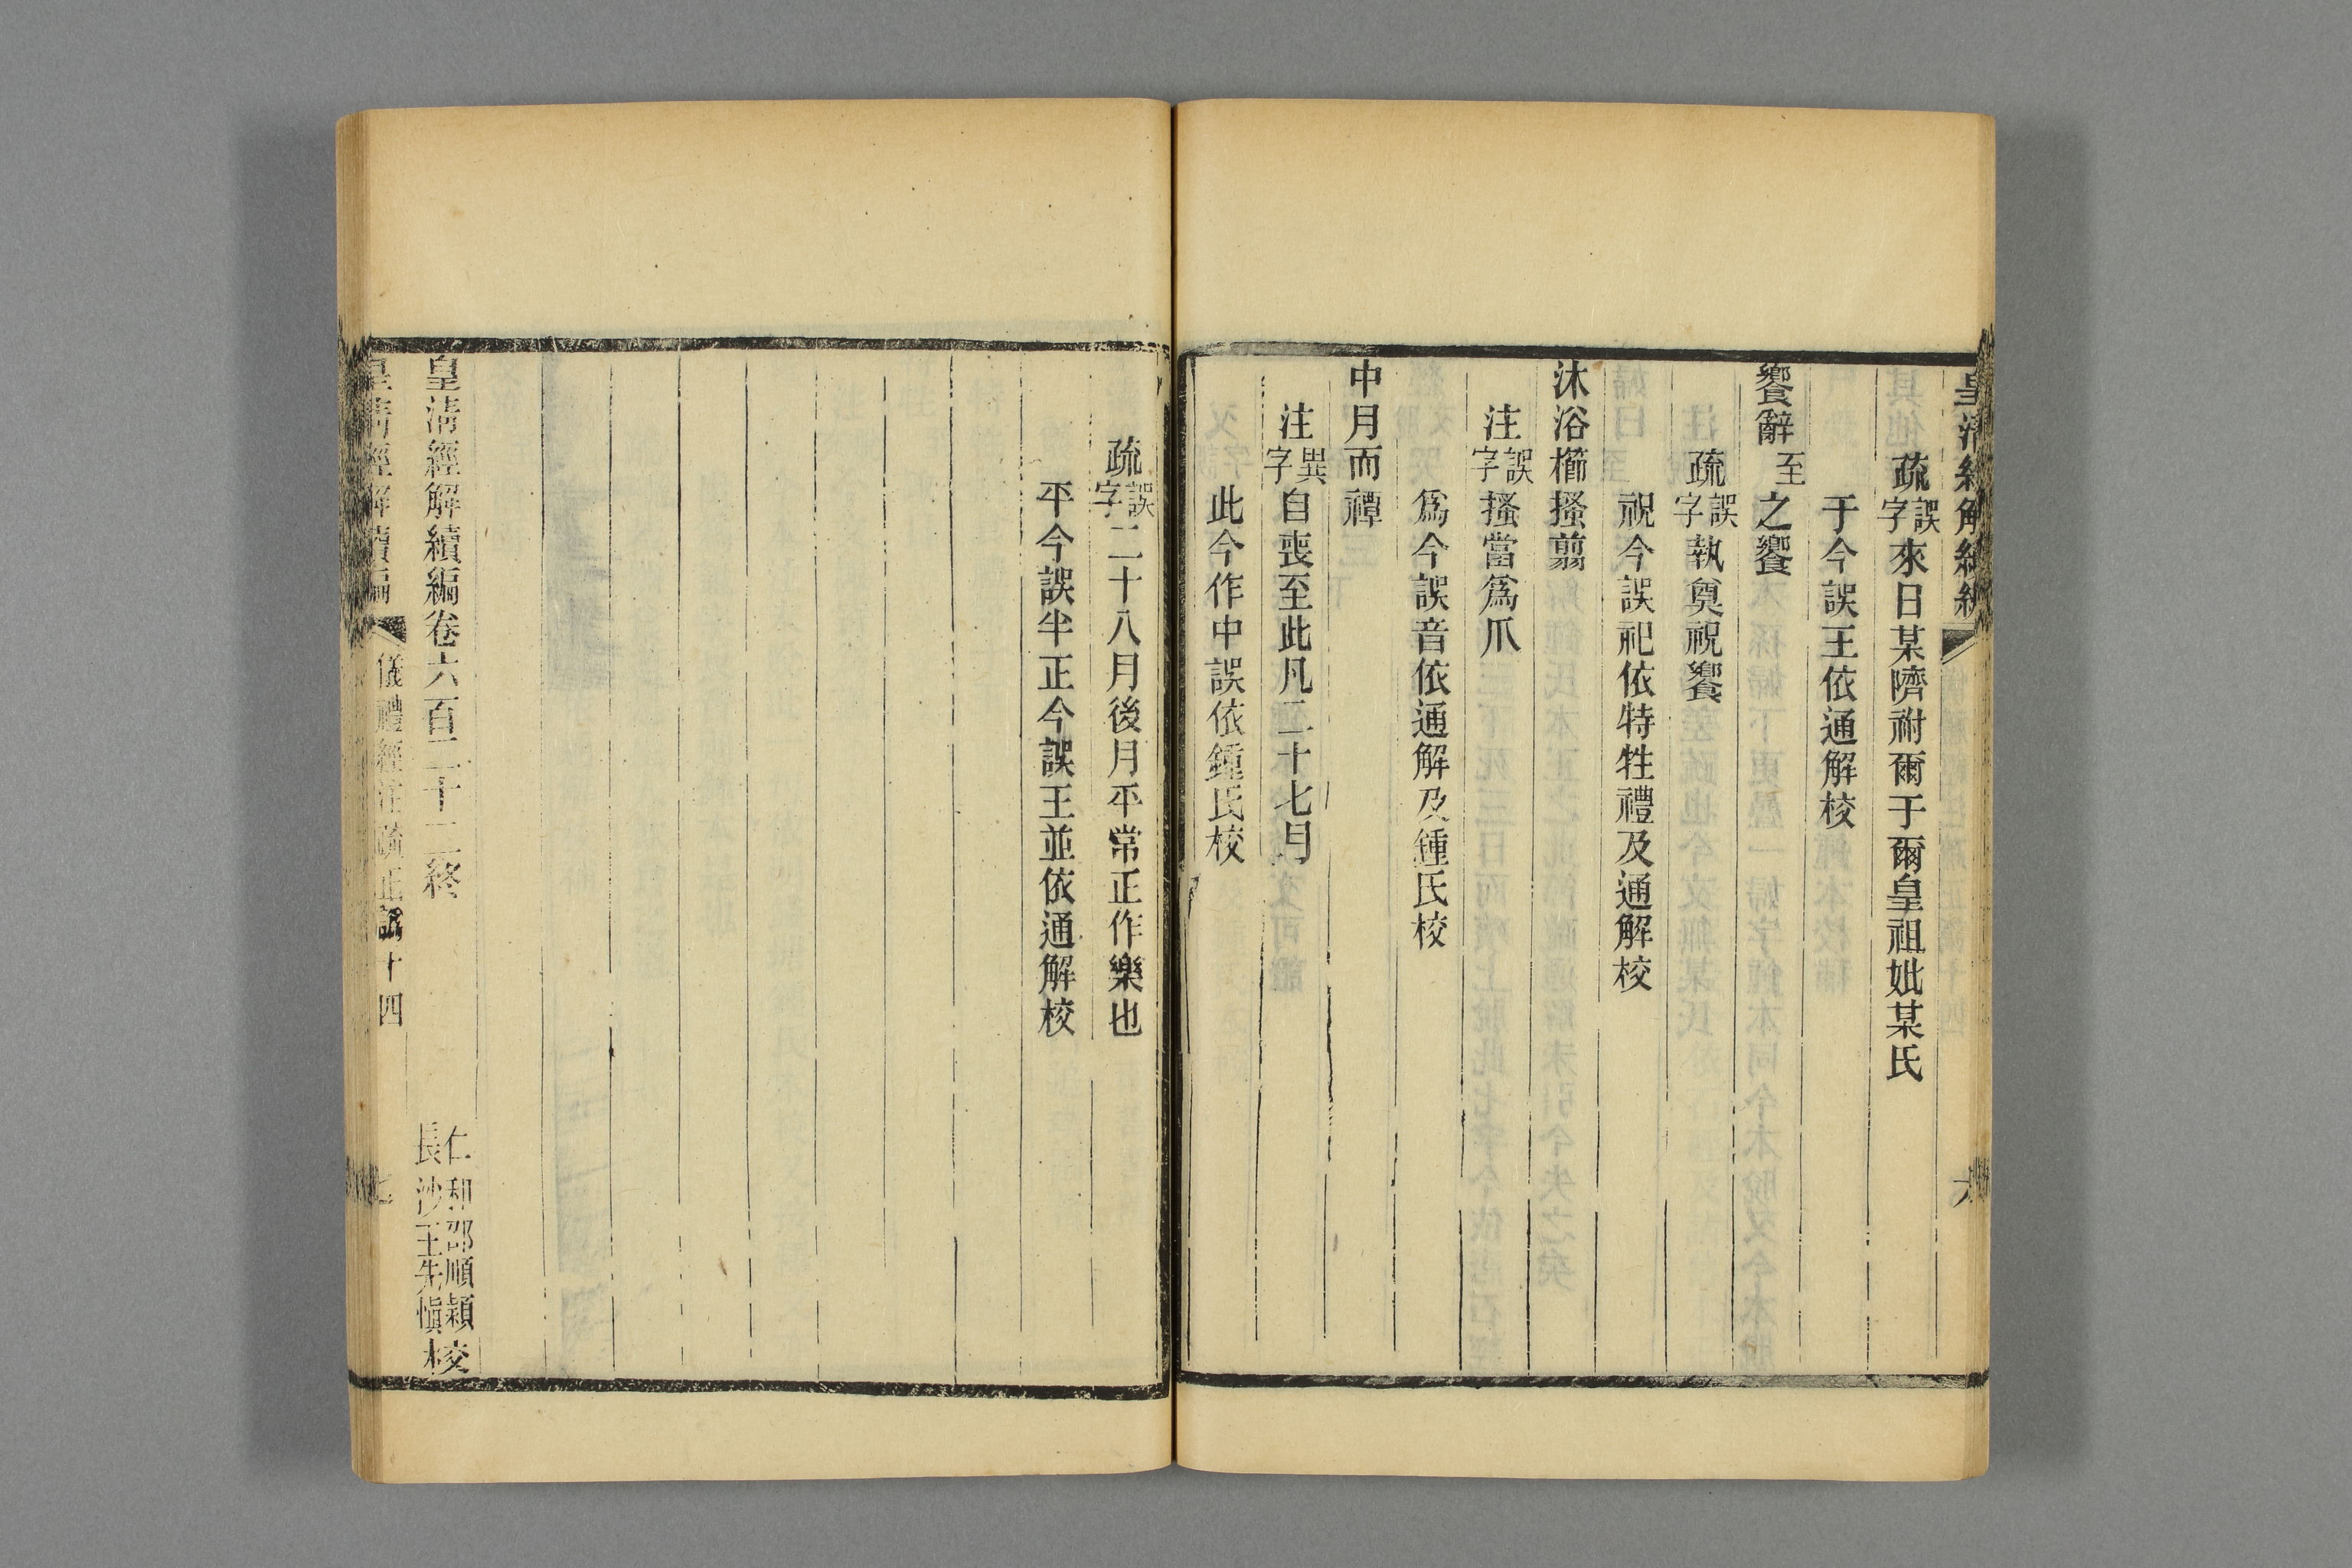 皇清經解續編
六
疏誤字來日某隮祔爾于爾皇祖妣某氏
于今誤王依通解校
饗辭至之饗
疏誤字執奠祝饗
祝今誤祀依特牲禮及通解校
沐浴櫛搔翦
注誤字搔當爲爪
爲今誤音依通解及鍾氏校
中月而禫
注異字自喪至此凡二十七月
此今作中誤依鍾氏校
疏誤字二十八月後月平常正作樂也
平今誤半正今誤王並依通解校
皇清經解續編卷六百二十二終
仁和邵順穎
長沙王先愼校
皇清經解續編 儀禮經注疏正譌十四
七